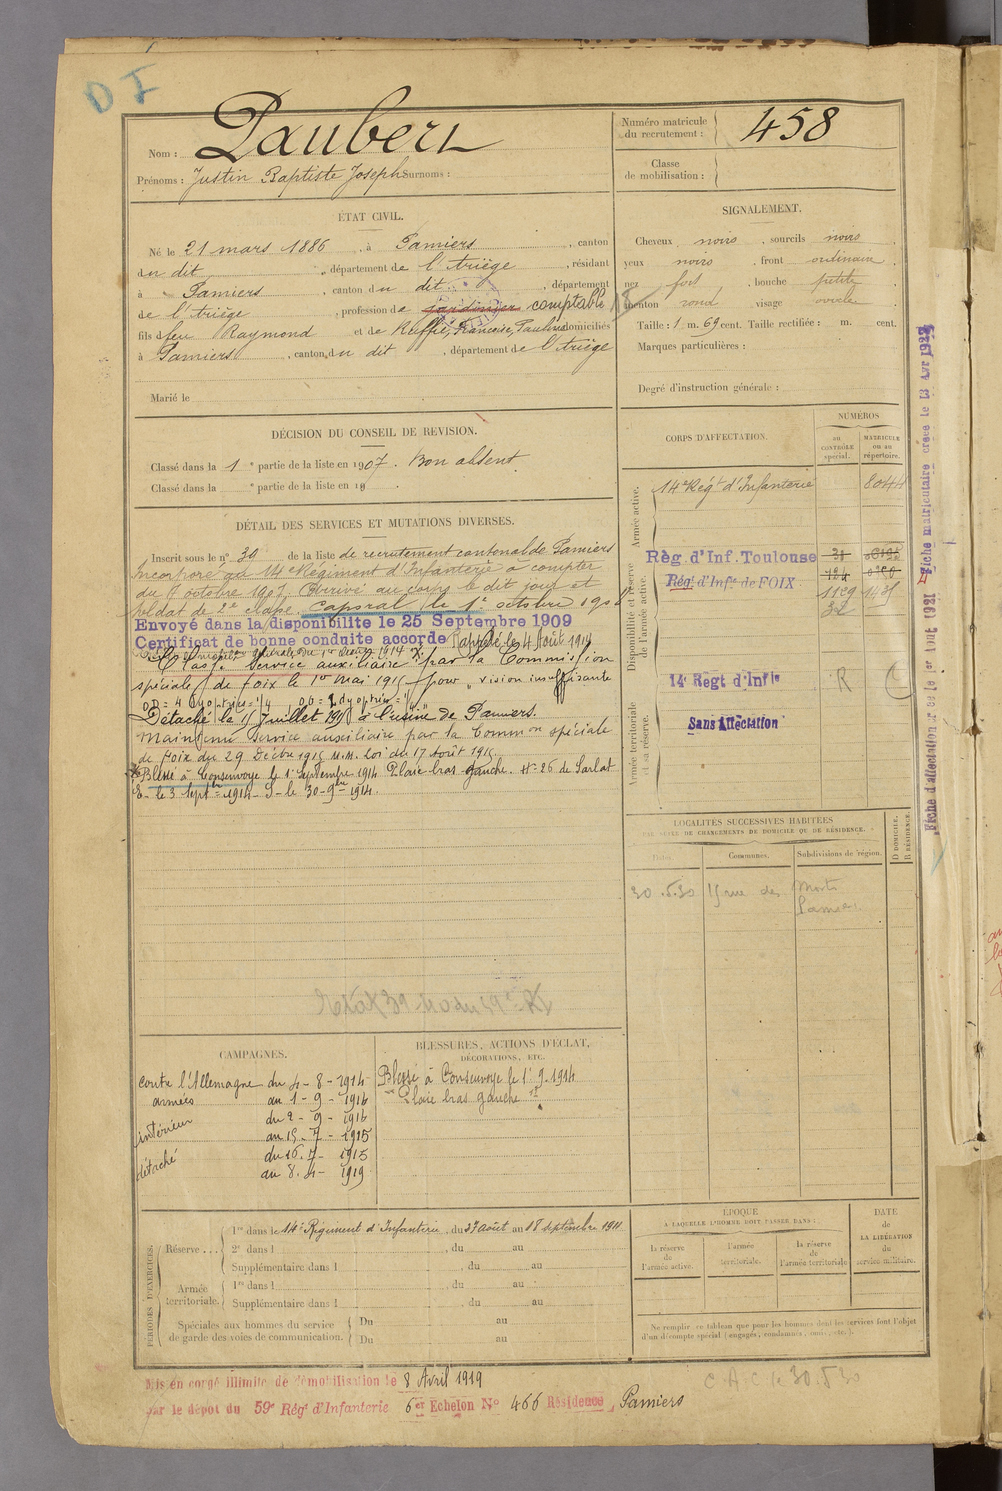 D I
Nom : Daubert
Prénoms : Justin Baptiste Joseph Surnoms :
Numéro matricule du recrutement : 458
Classe de mobilisation :
ÉTAT CIVIL.
Né le 21 mars 1886, à Pamiers, canton
du dit, département de l'Ariège, résidant
à Pamiers, canton du dit, département
de l'Ariège, profession de jardinier comptable
fils de feu Raymond et de Ruffié, Françoise, Pauline domiciliés
à Pamiers, canton du dit, département de l'Ariège
Marié le
SIGNALEMENT.
Cheveux noirs, sourcils noirs
yeux noirs, front ordinaire,
nez fort, bouche petite
menton rond visage ovale
Taille : 1 m. 69 cent. Taille rectifiée : m. cent.
Marques particulières :
Degré d'instruction générale :
DÉCISION DU CONSEIL DE REVISION.
Classé dans la 1e partie de la liste en 1907. Bon absent
Classé dans la e partie de la liste en 19
DÉTAIL DES SERVICES ET MUTATIONS DIVERSES.
Inscrit sous le n° 30 de la liste de recrutement cantonal de Pamiers
Incorporé au 14e Régiment d'Infanterie à compter
du 7 octobre 1907. Arrivé au corps le dit jour et
soldat de 2e classe. Caporal le 1er octobre 190
Envoyé dans la disponibilité le 25 Septembre 1909
Certificat de bonne conduite accordé Rappelé le 4 Août 1914
Classé Service auxiliaire par la Commission
spéciale de Foix le 1er Mai 1915 pour "vision insuffisante
OD = 4 dyoptries = 1/4, OG = 2 dyoptries =
Détaché le 15 Juillet 1915 à l'usine de Pamiers.
Maintenu service auxiliaire par la Common spéciale
de Foix du 29 Décbre 1915 U.M. Loi du 17 Août 1915
Blessé à Consenvoye le 1er Septembre 1914 Plaie bras gauche. H= 26 de Sarlat
E- le 3 Septbre 1914 - S- le 30-9bre 1914.
CORPS D'AFFECTATION.
NUMÉROS
au CONTRÔLE spécial.
MATRICULE ou au répertoire.
Armée active.
14e Régt d'Infanterie 8044
Disponibilité et réserve de l'armée active.
Règ. d'Inf. Toulouse 31
Régt d'Infie de FOIX 124
1129 1435
32
14e Régt d'Infie R
Armée territoriale et sa réserve.
Sans Affectation
Fiche matriculaire créée le 13 Avr 192
Fiche d'affectation créée le 1er Août 1921
LOCALITÉS SUCCESSIVES HABITÉES
PAR SUITE DE CHANGEMENTS DE DOMICILE OU DE RÉSIDENCE.
Dates. Communes. Subdivisions de région. D DOMICILE. R RÉSIDENCE.
30.5.30 15 rue des Monts
Pamiers
CAMPAGNES.
contre l'Allemagne du 4-8-1914
armées au 1-9-1914
intérieur du 2-9-1914
au 15-7-1915
détaché du 16.7-1915
au 8.4-1919
BLESSURES, ACTIONS D'ÉCLAT,
DÉCORATIONS, ETC.
Blessé à Consenvoye le 1er 9.1914
Plaie bras gauche
PÉRIODES D'EXERCICES.
Réserve ...
1re dans le 14e Régiment d'Infanterie, du 27 août au 18 septembre 1911
2e dans l , du au
Supplémentaire dans l , du au
Armée territoriale.
1re dans l , du au
Supplémentaire dans l , du au
Spéciales aux hommes du service de garde des voies de communication.
Du au
Du au
ÉPOQUE
A LAQUELLE L'HOMME DOIT PASSER DANS :
la réserve de l'armée active.
l'armée territoriale.
la réserve de l'armée territoriale
DATE
de
LA LIBÉRATION
du
service militaire.
Ne remplir ce tableau que pour les hommes dont les services font l'objet
d'un décompte spécial (engagés, condamnés, omis, etc.).
Mis en congé illimité de démobilisation le 8 Avril 1919
par le dépôt du 59e Régt d'Infanterie 6e Echelon N° 466 Résidence Pamiers
C.A.C le 30.5.30